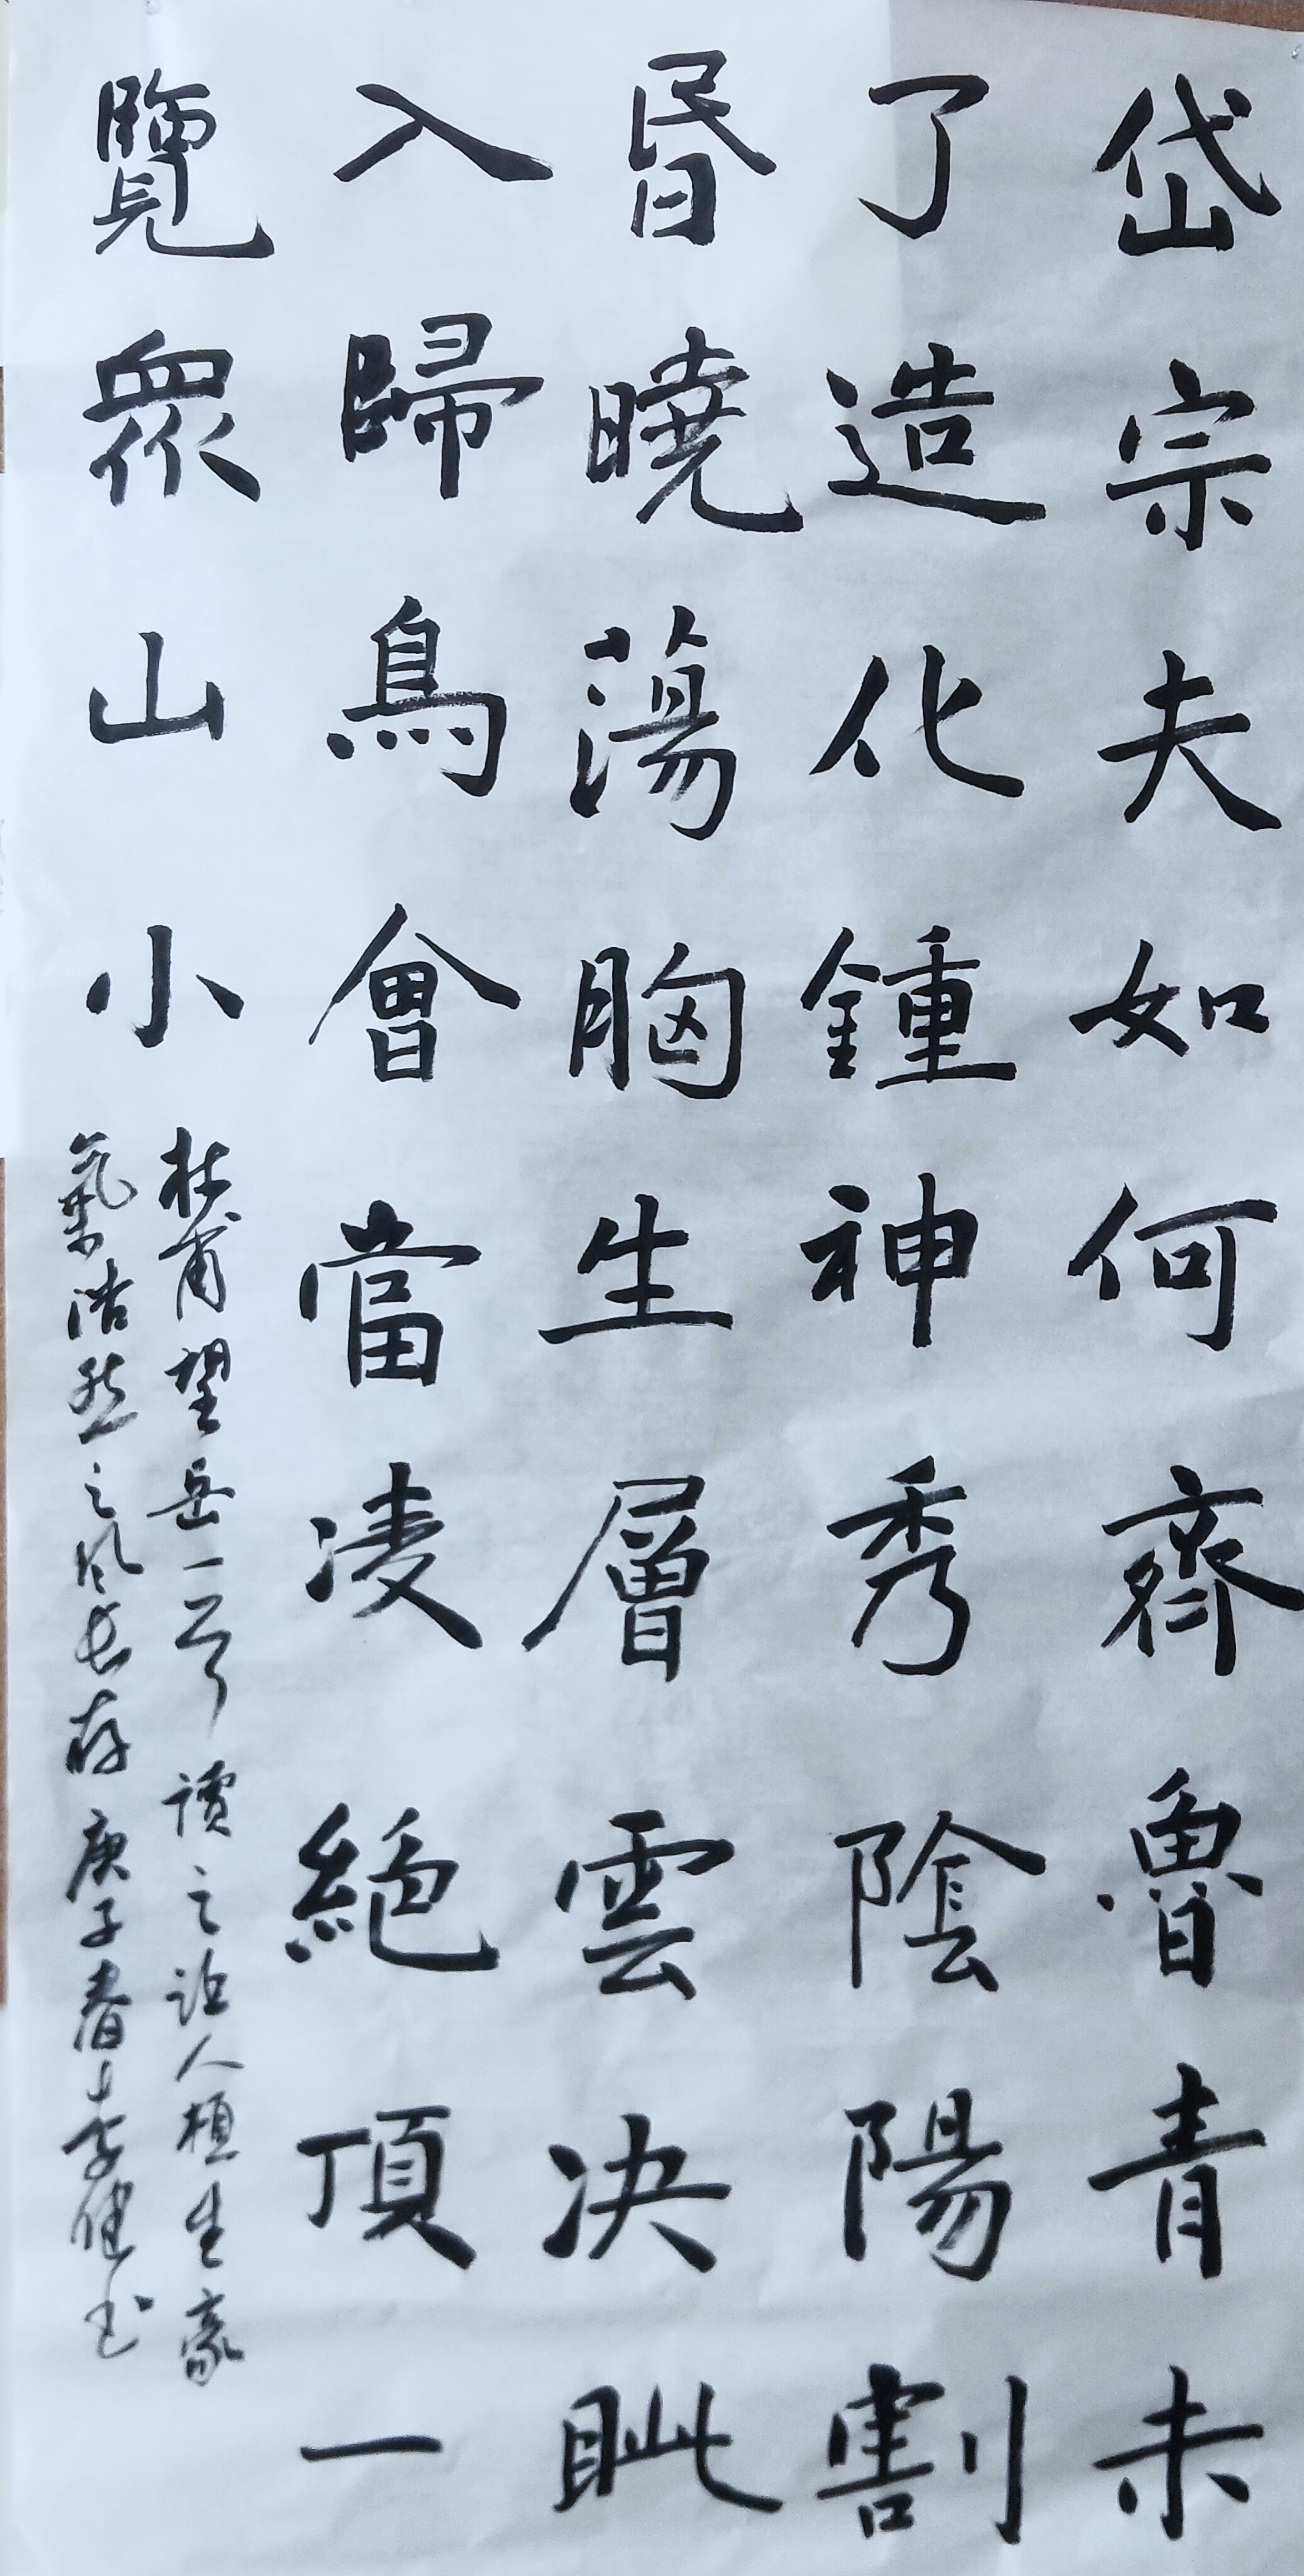 岱宗夫如何齊魯青未
了造化鍾神秀陰陽割
昏曉蕩胸生層雲決眦
入歸鳥會當凌絕頂一
覽眾山小
杜甫望岳一首讀之让人植生豪
氣浩然之风长存庚子春李健书